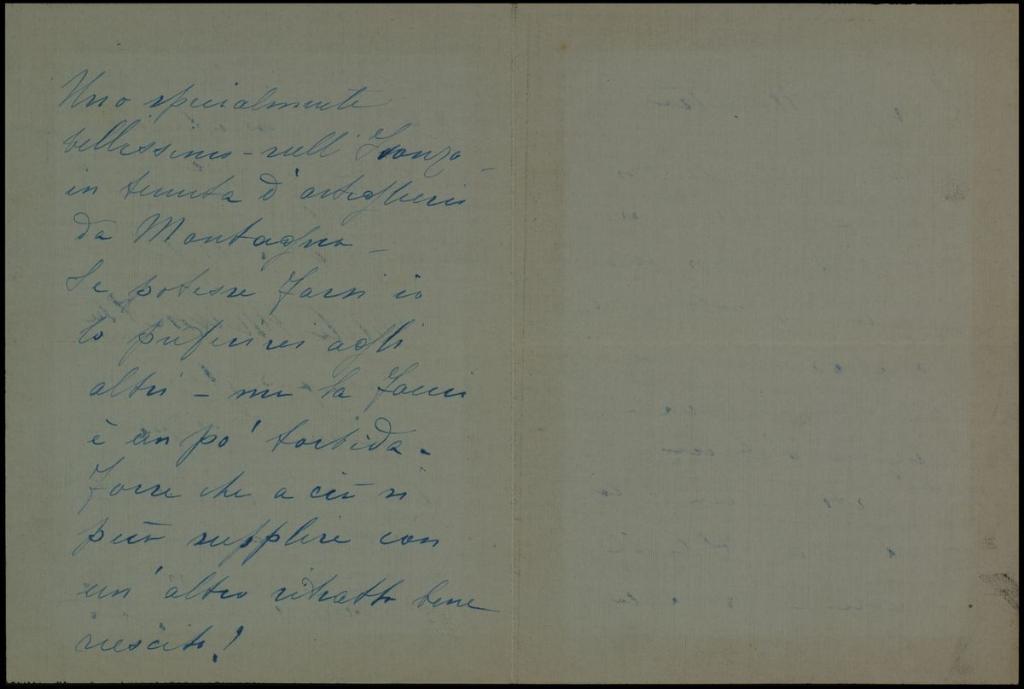 Uno specialmente
bellissimo - sull' Isonzo -
in tenuta d' artiglieria
da Montagna -
Se potesse farsi io
lo preferirei agli
altri - ma la faccia
è un po' torbida -
Forse che a ciò si
può supplire con
un' altro ritratto bene
riescito!